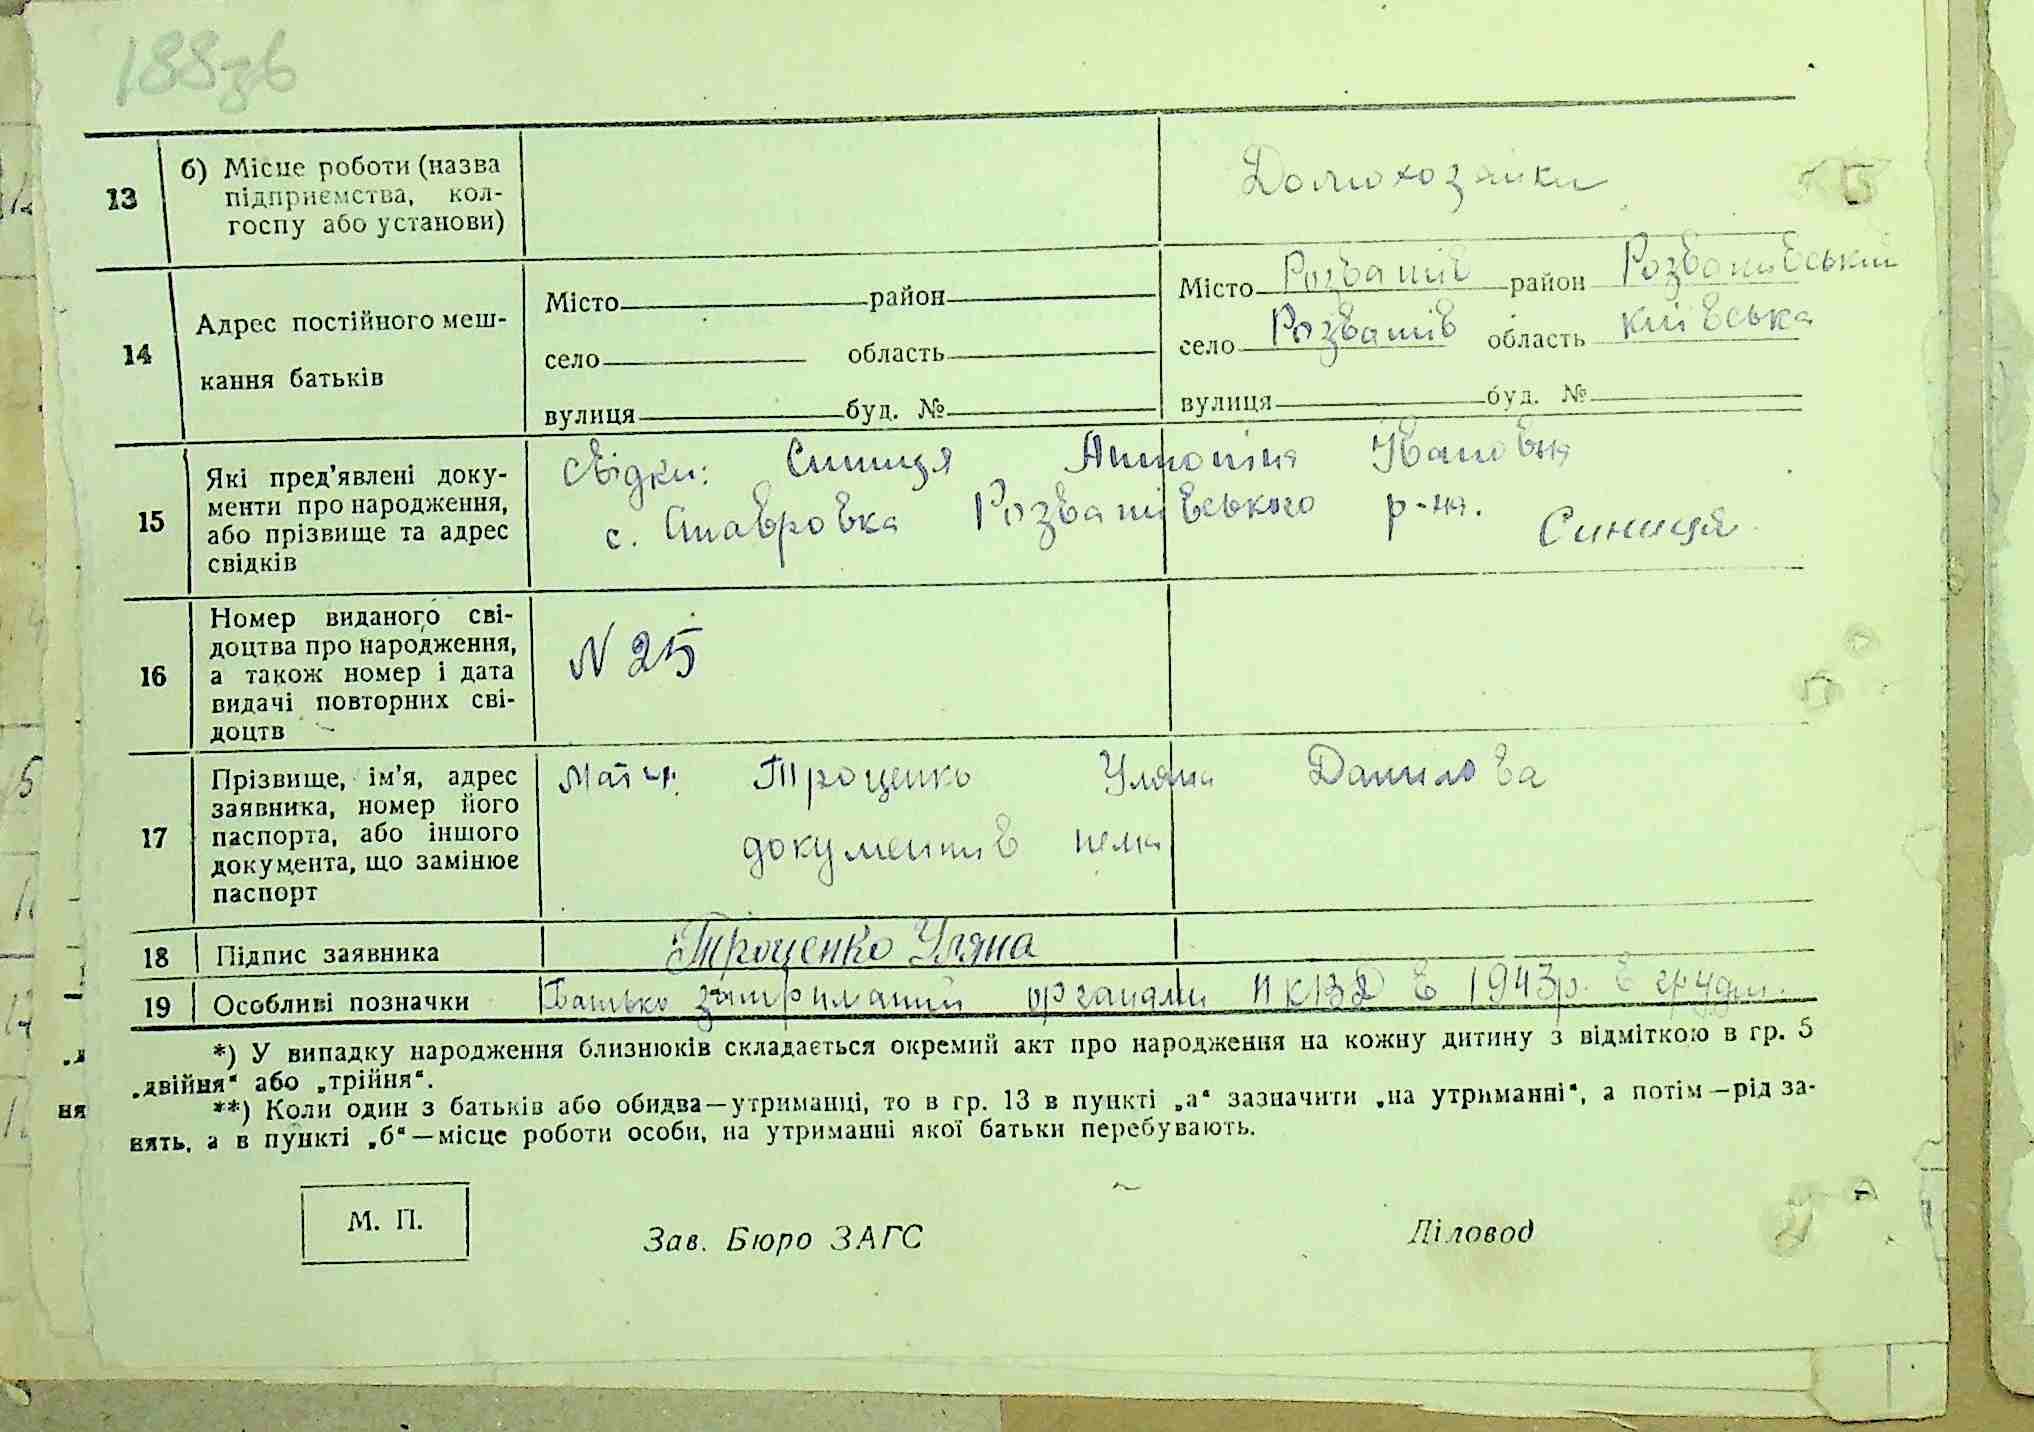 188зв
13 б) Місце роботи (назва
підприємства, кол-
госпу або установи)
Домохозяйки
14 Адрес постійного меш-
кання батьків
Місто район
село область
вулиця буд. №
Місто Розважів район Розважівський
село Розважів область київська
вулиця буд. №
15 Які пред'явлені доку-
менти про народження,
або прізвище та адрес
свідків
Свідки: Синиця Антоніна Івановня
с. Ставровка Розважівського р-на. Синиця
16 Номер виданого сві-
доцтва про народження,
а також номер і дата
видачі повторних сві-
доцтв
N 25
17 Прізвище, ім'я, адрес
заявника, номер його
паспорта, або іншого
документа, що замінює
паспорт
Мати Троценко Уляна Данилова
документів нема
18 Підпис заявника Троценко Уляна
19 Особливі позначки Батько затриманий органами НКВД в 1943р. в грудні.
*) У випадку народження близнюків складається окремий акт про народження на кожну дитину з відміткою в гр. 5
„двійня“ або „трійня“.
**) Коли один з батьків або обидва—утриманці, то в гр. 13 в пункті „а“ зазначити „на утриманні“, а потім—рід за-
нять, а в пункті „б“—місце роботи особи, на утриманні якої батьки перебувають.
М. П.
Зав. Бюро ЗАГС Діловод